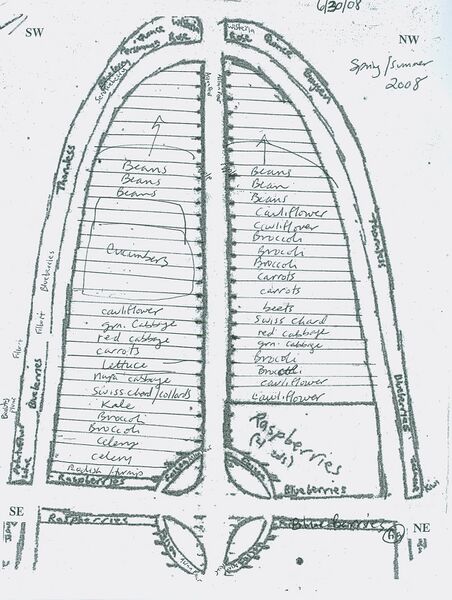 6/30/08
SW
NW
Spring/summer
2008
Quince
Rose
Western
Rose
Quince
Thornless
Beans
Beans
Beans
Cucumbers
cauliflower
grn. Cabbage
red cabbage
carrots
Lettuce
napa cabbage
Swiss chard/collards
Kale
Broccoli
Broccoli
Celery
celery
Radish/turnip
Raspberries
Blueberries
Filbert
Filbert
Blueberries
Beans
Bean
Beans
Cauliflower
Cauliflower
Broccoli
Broccoli
Broccoli
Carrots
carrots
beets
Swiss chard
red cabbage
grn. cabbage
Broccoli
Broccoli
cauliflower
cauliflower
Raspberries
Blueberries
Thornless
Blueberries
Kiwi
SE
NE
Raspberries
Blueberries